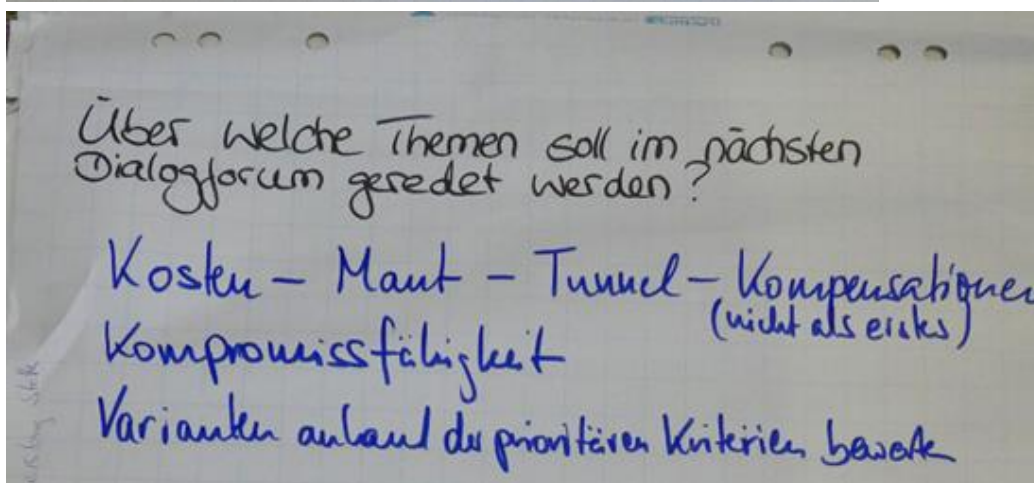 Über welche Themen soll im nächsten
Dialogforum geredet werden?
Kosten – Maut – Tunnel – Kompensationen
(nicht als erstes)
Kompromissfähigkeit
Varianten anhand der prioritären Kriterien